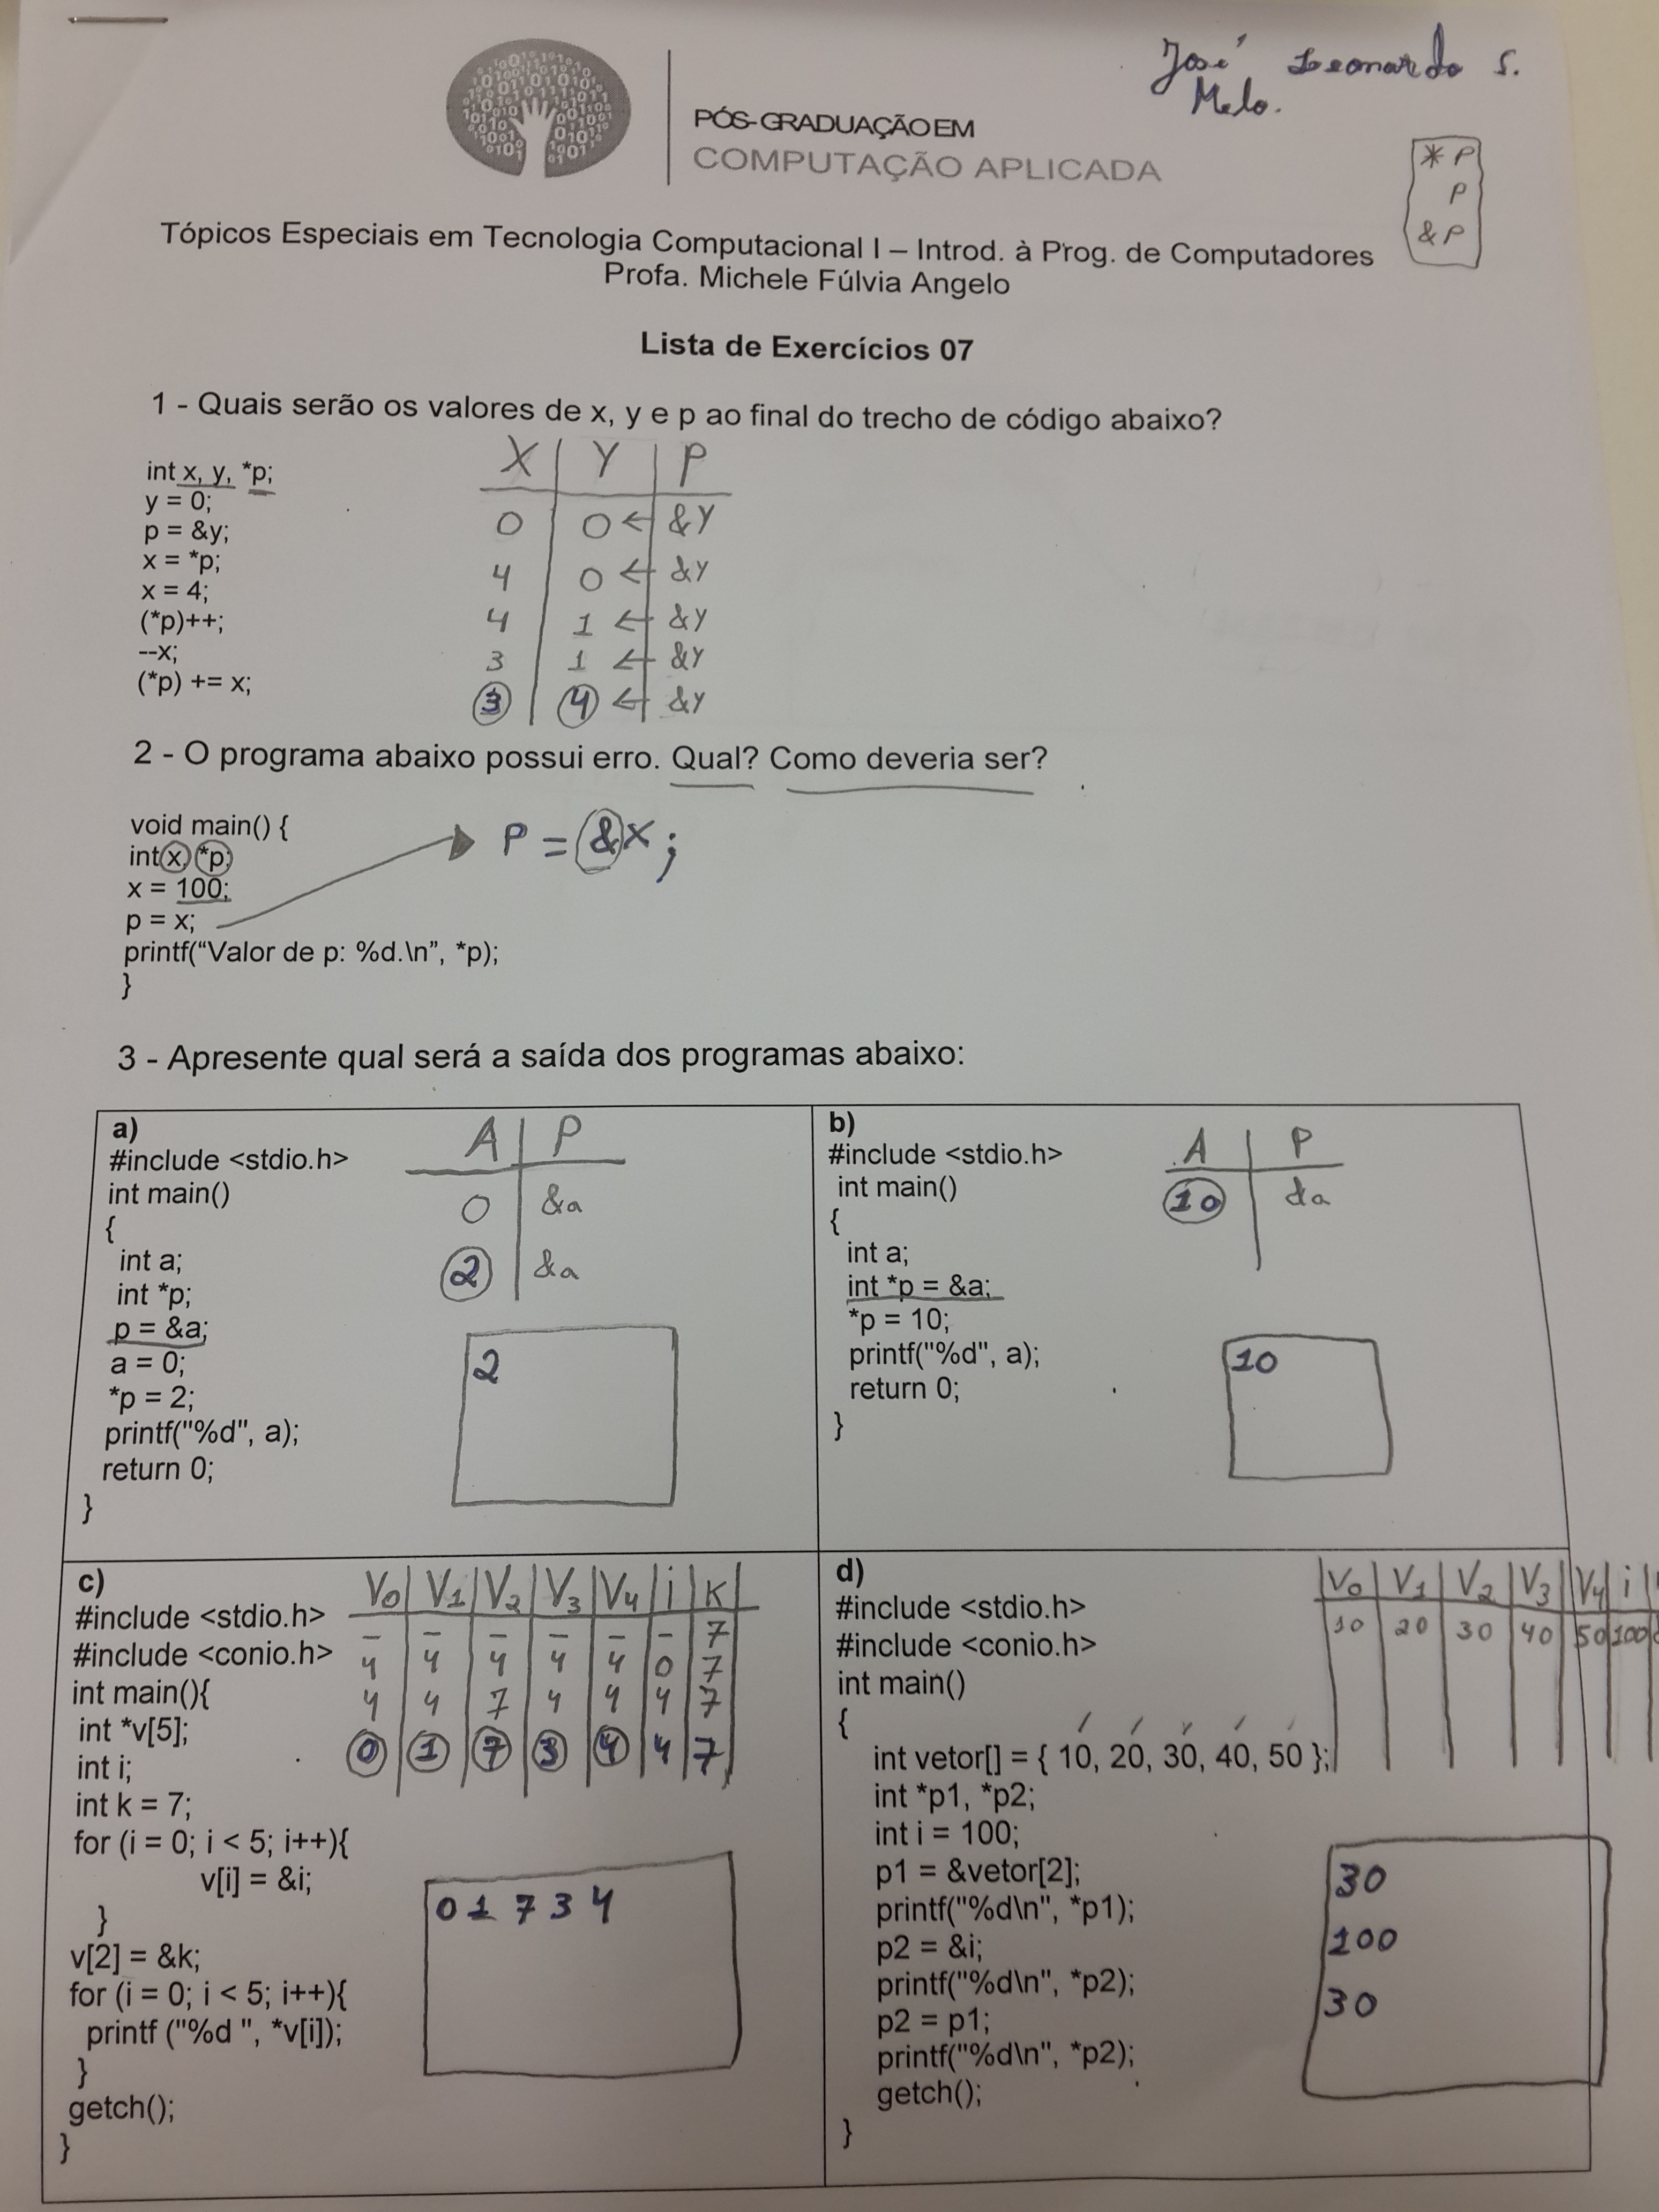 José Leonardo S.
Melo.
PÓS-GRADUAÇÃO EM
COMPUTAÇÃO APLICADA
* P
P
& P
Tópicos Especiais em Tecnologia Computacional I – Introd. à Prog. de Computadores
Profa. Michele Fúlvia Angelo
Lista de Exercícios 07
1 - Quais serão os valores de x, y e p ao final do trecho de código abaixo?
int x, y, *p;
y = 0;
p = &y;
x = *p;
x = 4;
(*p)++;
--x;
(*p) += x;
X | Y | P
0 | 0 ← &Y
4 | 0 ← &Y
4 | 1 ← &Y
3 | 1 ← &Y
3 | 4 ← &Y
2 - O programa abaixo possui erro. Qual? Como deveria ser?
void main() {
int x, *p;
x = 100;
p = x;
printf(“Valor de p: %d.\n”, *p);
}
P = &X;
3 - Apresente qual será a saída dos programas abaixo:
a)
#include <stdio.h>
int main()
{
int a;
int *p;
p = &a;
a = 0;
*p = 2;
printf("%d", a);
return 0;
}
A | P
0 | &a
2 | &a
2
b)
#include <stdio.h>
int main()
{
int a;
int *p = &a;
*p = 10;
printf("%d", a);
return 0;
}
A | P
10 | &a
10
c)
#include <stdio.h>
#include <conio.h>
int main(){
int *v[5];
int i;
int k = 7;
for (i = 0; i < 5; i++){
v[i] = &i;
}
v[2] = &k;
for (i = 0; i < 5; i++){
printf ("%d ", *v[i]);
}
getch();
}
V0 | V1 | V2 | V3 | V4 | i | K
– – – – – – 7
4 4 4 4 4 0 7
4 4 7 4 4 4 7
0 1 7 3 4 4 7
0 1 7 3 4
d)
#include <stdio.h>
#include <conio.h>
int main()
{
int vetor[] = { 10, 20, 30, 40, 50 };
int *p1, *p2;
int i = 100;
p1 = &vetor[2];
printf("%d\n", *p1);
p2 = &i;
printf("%d\n", *p2);
p2 = p1;
printf("%d\n", *p2);
getch();
}
V0 | V1 | V2 | V3 | V4 | i |
10 | 20 | 30 | 40 | 50 | 100
30
100
30